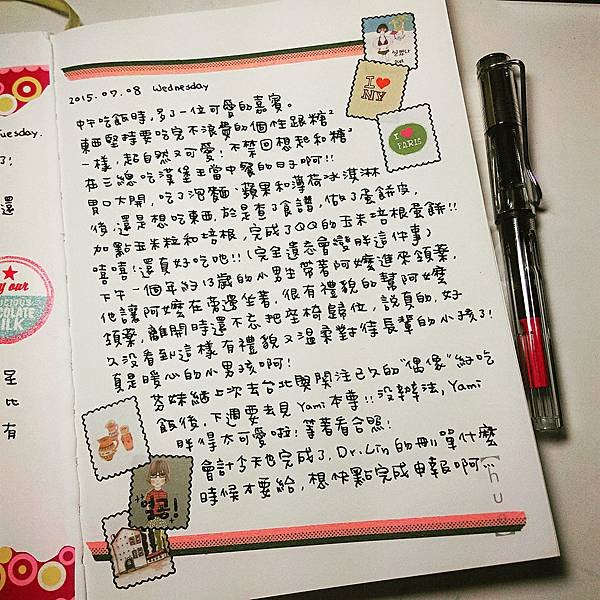 2015.07.08 Wednesday
中午吃飯時,多了一位可愛的嘉賓。
東西堅持要吃完不浪費的個性跟糖²
一樣,超自然又可愛!不禁回想起和糖²
在三總吃漢堡王當中餐的日子啊!!
胃口大開,吃了泡麵、蘋果和薄荷冰淇淋
後,還是想吃東西,於是查了食譜,做了蛋餅皮,
加點玉米粒和培根,完成了QQ的玉米培根蛋餅!!
嘻嘻!還真好吃吔!!(完全遺忘會變胖這件事)
下午一個年約13歲的小男生帶著阿嬤進來領藥,
他讓阿嬤在旁邊坐著,很有禮貌的幫阿嬤
領藥,離開時還不忘把座椅歸位,說真的,好
久沒看到這樣有禮貌又溫柔對待長輩的小孩了!
真是暖心的小男孩啊!
芬妹結上次去台北與關注已久的"偶像"紀吃
飯後,下週要去見Yami本尊!!沒辦法,Yami
胖得太可愛啦!等著看合照!
會計今天也完成了,Dr.Lin的刪單什麼
時候才要給,想快點完成申報啊
I ♥
NY
I ♥
PARIS
열공!
Tuesday.
了!
還
y our
ICIOUS
OCOLATE
ILK
呈
比
有